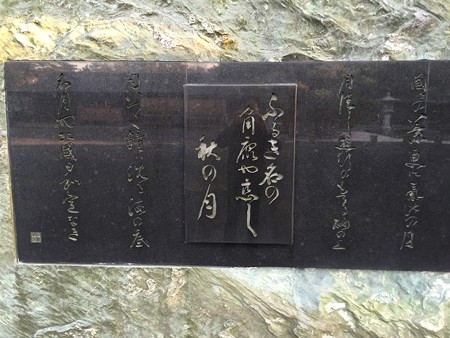 国々の八景更に氣比の月
月清し遊行のもてる砂の上
ふるき名の
角鹿や恋し
秋の月
月いつく鐘は沈る海の底
名月や北國日和定なき